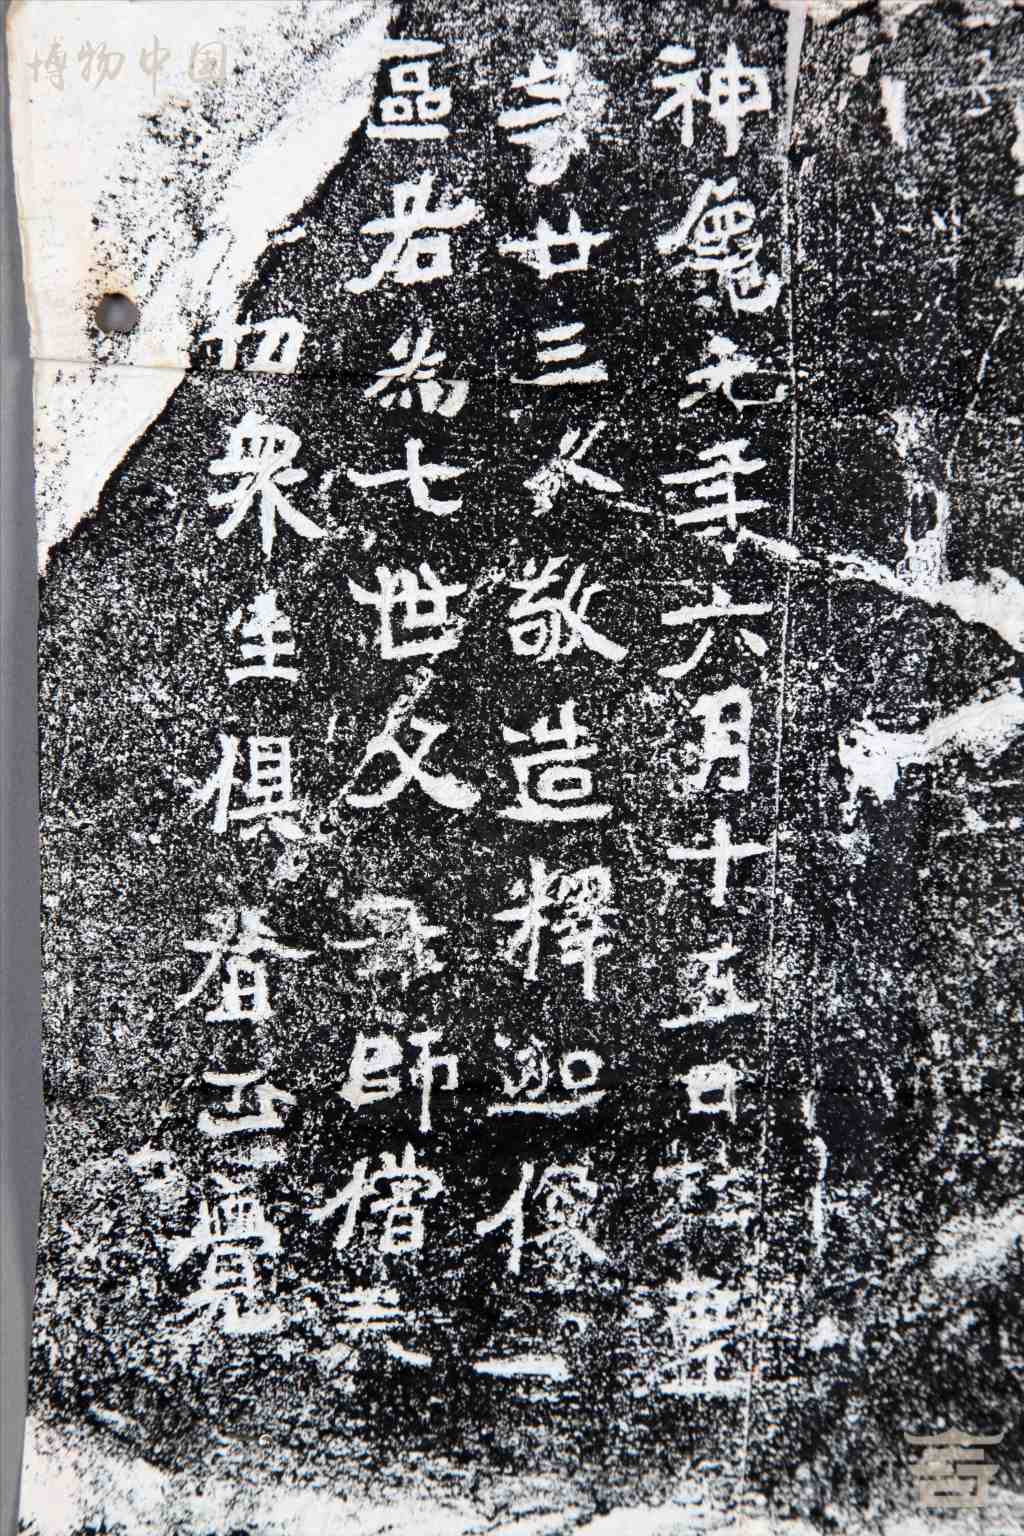 神龜元年六月十五日杜
等廿三人敬造釋迦像一
區若為七世父母師僧夫
切眾生俱登正覺
博物中国